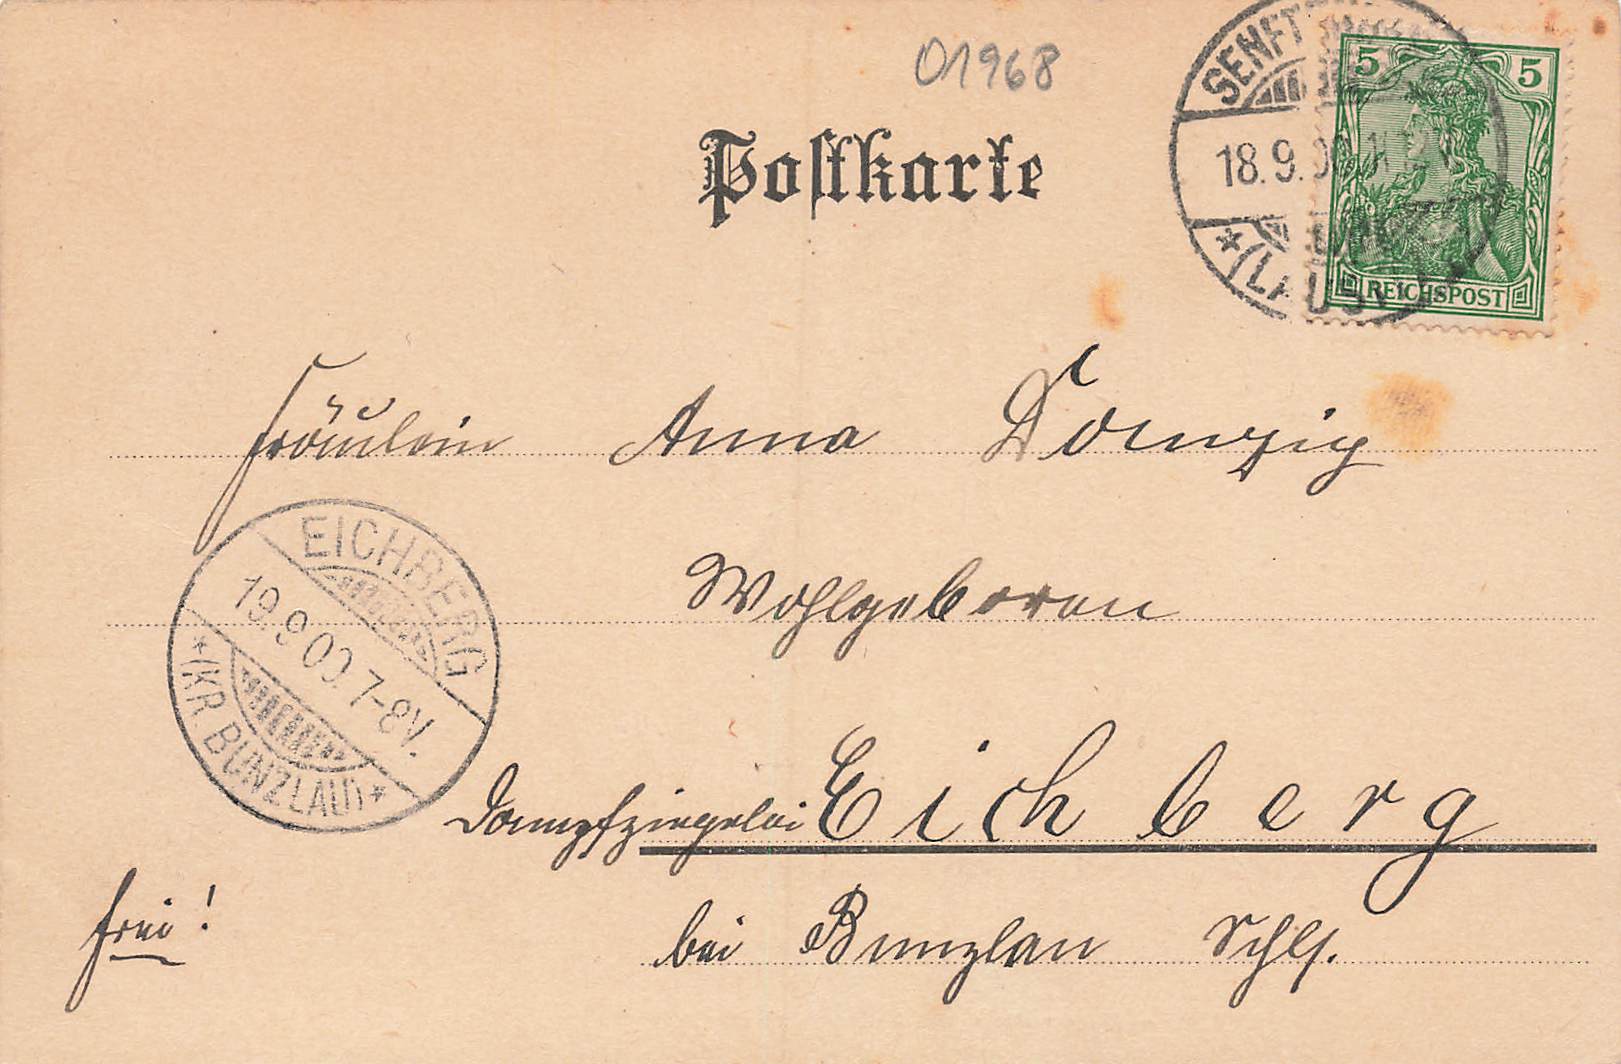 01968
Postkarte
SENFT
18.9.00
*(LAUSITZ
5 5
REICHSPOST
Fräulein Anna Domzig
Wohlgeboren
EICHBERG
19.9.00.7-8V.
*(KR. BUNZLAU)*
Dampfziegelei Eichberg
frei!
bei Bunzlau Schls.